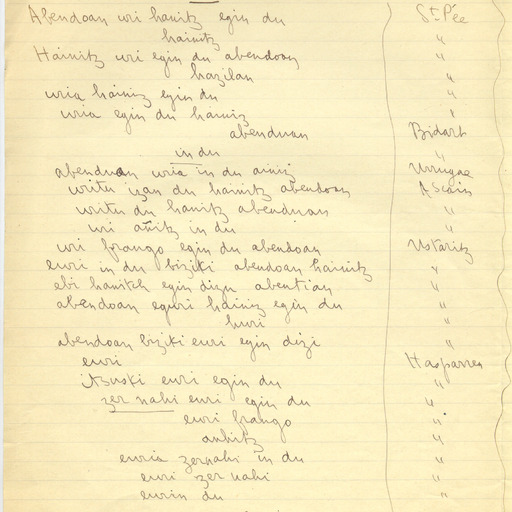 Abendoan uri hanitz egin du St Pée
hainitz "
Hainitz uri egin du abendoan "
hazilan "
uria hainiz egin du "
uria egin du hainiz "
abenduan Bidart
in du "
abenduan uria in du ainiz Urrugne
uritu izan du hainitz abendoan Ascain
uritu du hanitz abenduan "
uri añitz in du "
uri frango egin du abendoan Ustaritz
euri in du biziki abendoan hainitz "
ebi hanitch egin dizu abentian "
abendoan eguri hainiz egin du "
huri "
abendoan biziki euri egin dizi "
euri Hasparren
itsuski euri egin du "
zer nahi euri egin du "
euri frango "
anhitz "
euria zernahi in du "
euri zer nahi "
eurin du "